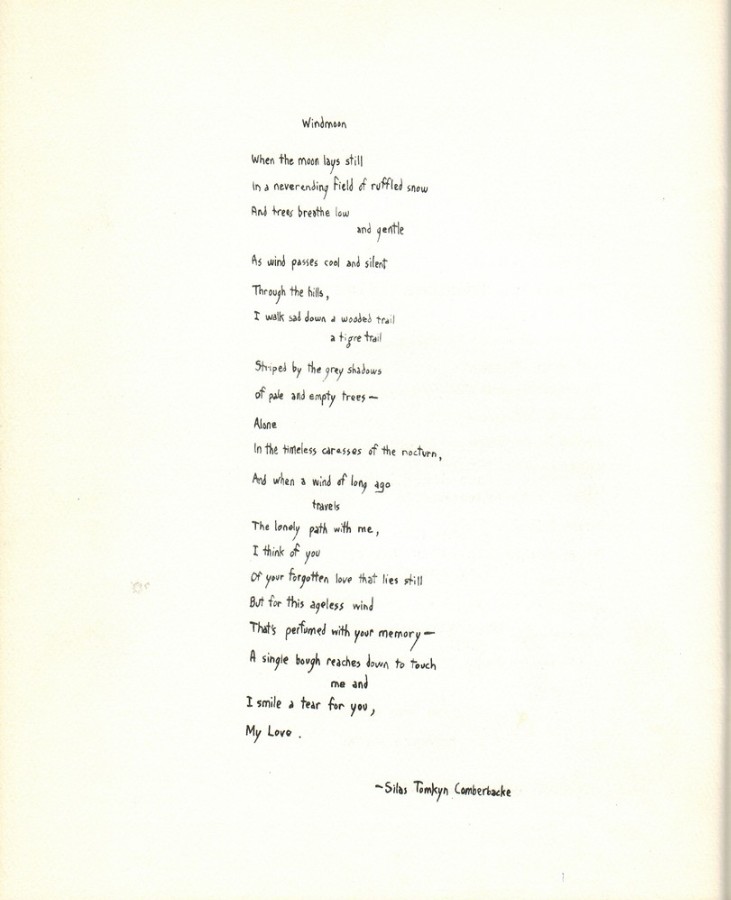 Windmoon
When the moon lays still
In a neverending field of ruffled snow
And trees breathe low
and gentle
As wind passes cool and silent
Through the hills,
I walk sad down a wooded trail
a tigre trail
Striped by the grey shadows
of pale and empty trees—
Alone
In the timeless caresses of the nocturn,
And when a wind of long ago
travels
The lonely path with me,
I think of you
Of your forgotten love that lies still
But for this ageless wind
That's perfumed with your memory—
A single bough reaches down to touch
me and
I smile a tear for you,
My Love.
—Silas Tomkyn Comberbacke